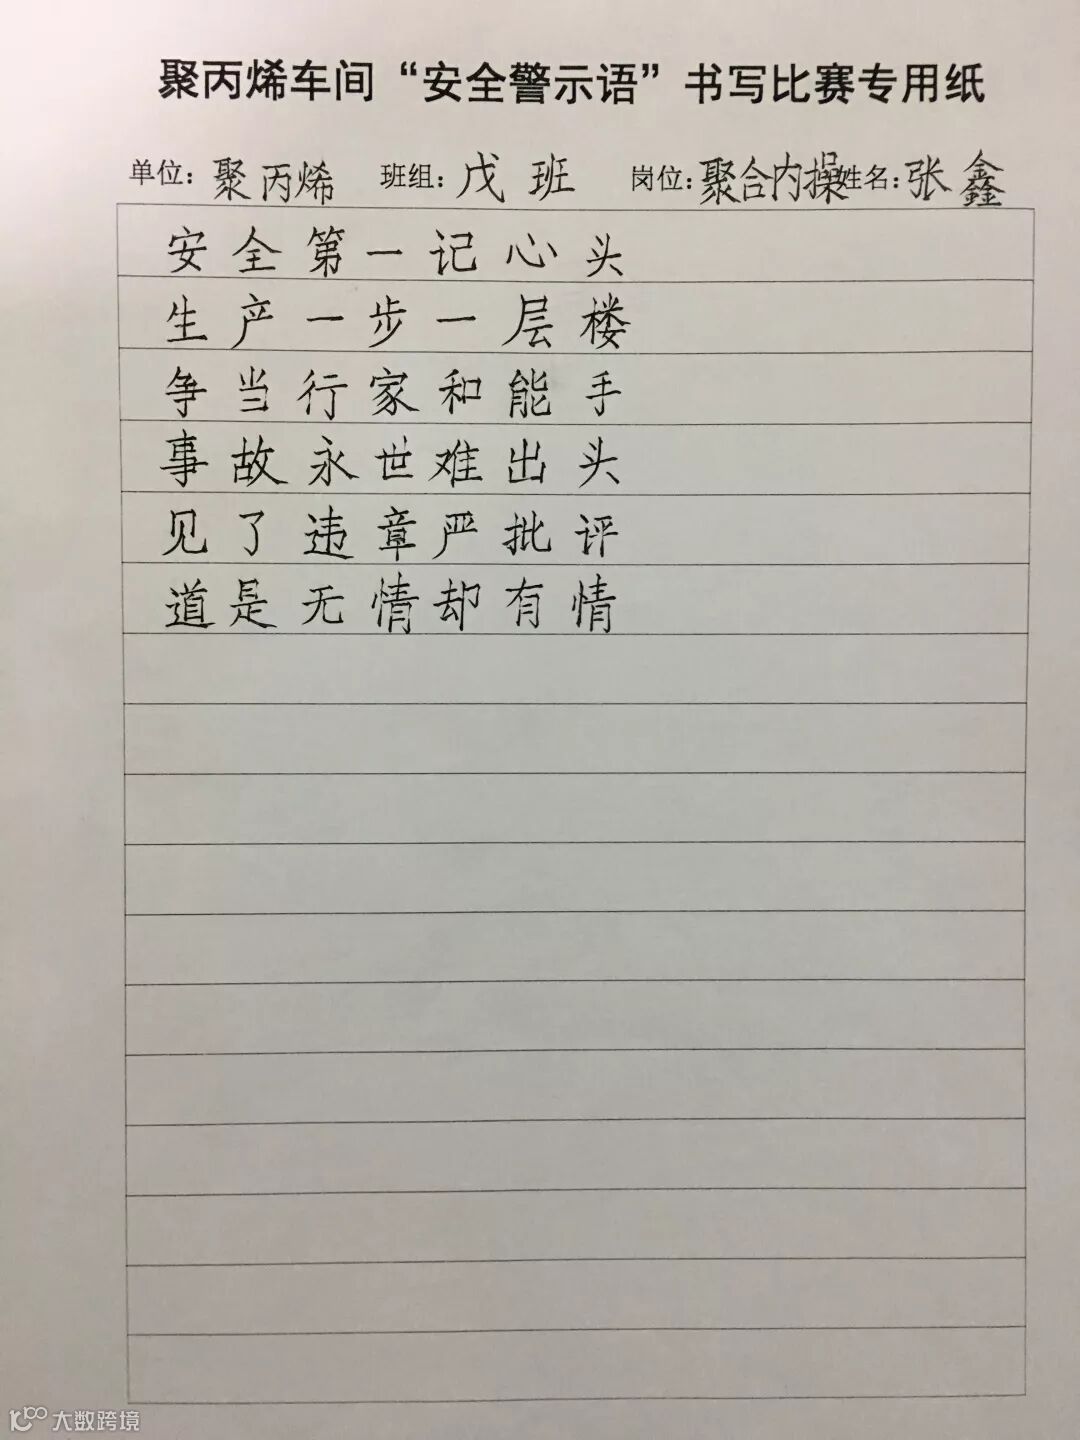 聚丙烯车间“安全警示语”书写比赛专用纸
单位：聚丙烯 班组：戊班 岗位：聚合内操 姓名：张鑫
安全第一记心头
生产一步一层楼
争当行家和能手
事故永世难出头
见了违章严批评
道是无情却有情
大数跨境